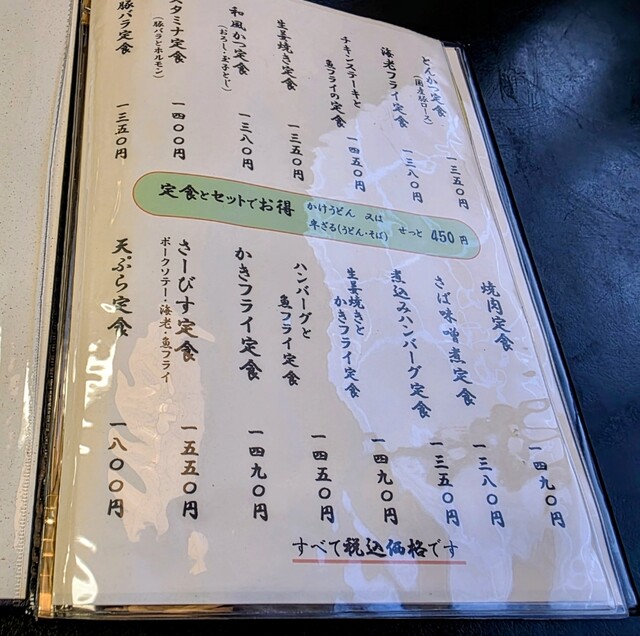 とんかつ定食
(国産豚ロース)
一三五〇円
海老フライ定食
一三八〇円
チキンステーキと
魚フライの定食
一四五〇円
生姜焼き定食
一三五〇円
和風かつ定食
(おろし・玉子とじ)
一三八〇円
スタミナ定食
(豚バラとホルモン)
一四〇〇円
豚バラ定食
一三五〇円
定食とセットでお得
かけうどん 又は
半ざる(うどん・そば)
せっと 450円
焼肉定食
一四九〇円
さば味噌煮定食
一三八〇円
煮込みハンバーグ定食
一三五〇円
生姜焼きと
かきフライ定食
一四九〇円
ハンバーグと
魚フライ定食
一四五〇円
かきフライ定食
一四九〇円
さーびす定食
ポークソテー・海老・魚フライ
一五五〇円
天ぷら定食
一八〇〇円
すべて税込価格です